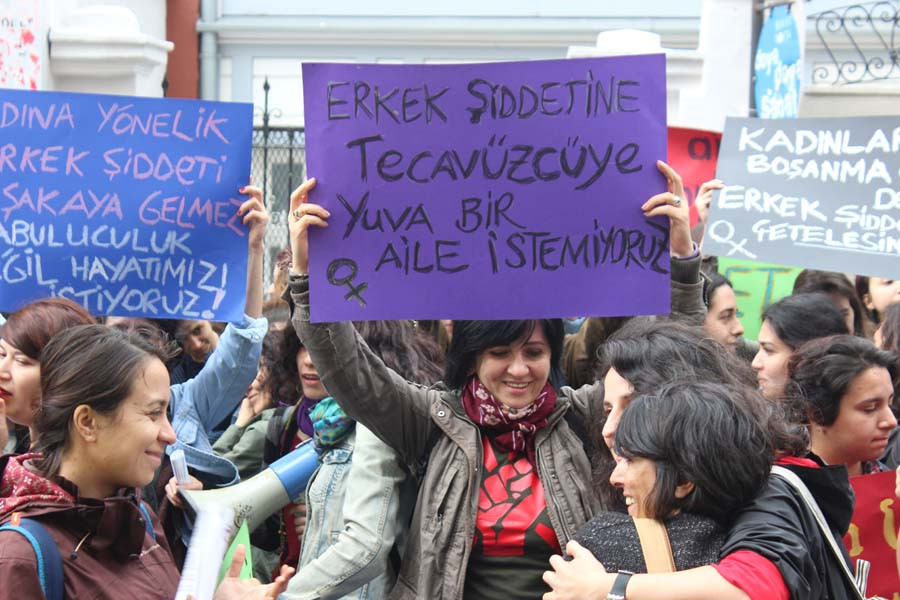 YÖNELİK
ERKEK ŞİDDETİ
ŞAKAYA GELMEZ
HAYATIMIZI
İSTİYORUZ!
ERKEK ŞİDDETİNE
TECAVÜZCÜYE
YUVA BİR
AİLE İSTEMİYORUZ
KADINLAR
BOŞANMA
ERKEK
GETELESİN